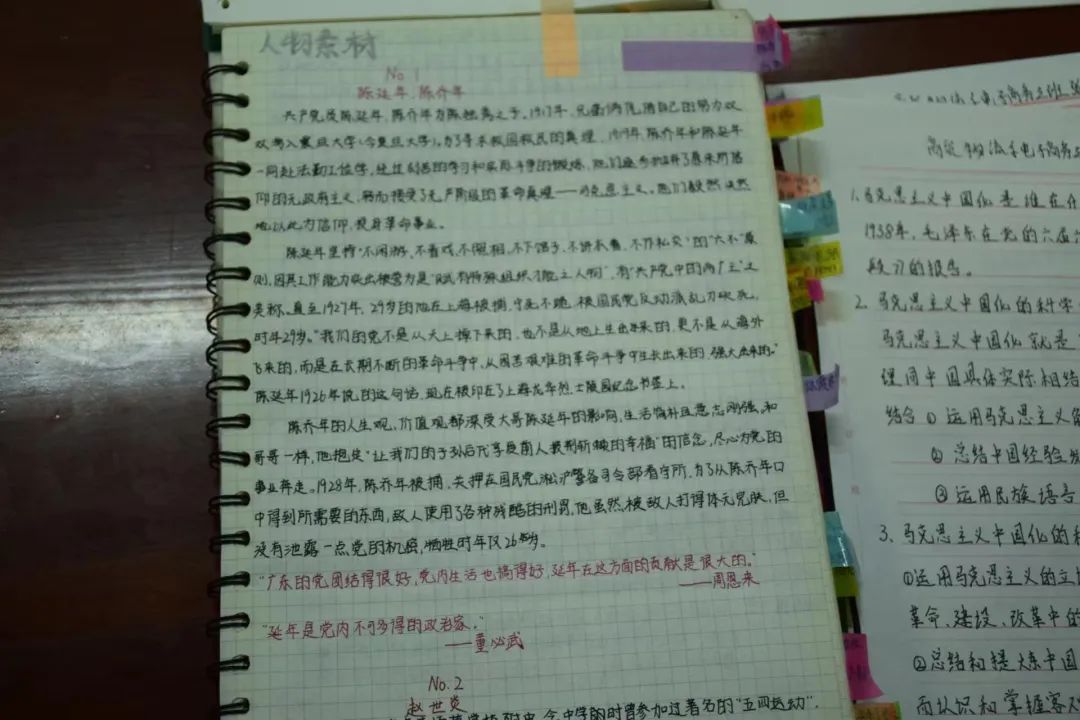 人物素材
No.1
陈延年、陈乔年
共产党员陈延年、陈乔年为陈独秀之子。1917年，兄弟俩凭借自己的努力双
双考入震旦大学(今复旦大学)。为了寻求救国救民的真理，1919年，陈乔年和陈延年
一同赴法勤工俭学，经过刻苦的学习和实际斗争的锻炼，他们逐步抛弃了原来所信
仰的无政府主义，转而接受了无产阶级的革命真理——马克思主义。他们毅然决然
地以此为信仰，投身革命事业。
陈延年坚持"不闲游，不看戏，不照相，不下馆子，不讲衣着，不作私交"的"六不"原
则，因其工作能力突出被誉为是"
有"共产党中的两广王"之
美称。直至1927年，29岁的他在上海被捕，宁死不跪，被国民党反动派乱刀砍死，
时年29岁。"我们的党不是从天上掉下来的，也不是从地上生出来的，更不是从海外
飞来的，而是在长期不断的革命斗争中，从困苦艰难的革命斗争中生长出来的，强大出来的。"
陈延年1926年说的这句话，现在被印在了上海龙华烈士陵园纪念书签上。
陈乔年的人生观、价值观都深受大哥陈延年的影响，生活俭朴且意志刚强，和
哥哥一样，他抱定"让我们的子孙后代享受前人披荆斩棘的幸福"的信念，尽心为党的
事业奔走。1928年，陈乔年被捕，关押在国民党淞沪警备司令部看守所，为了从陈乔年口
中得到所需要的东西，敌人使用了各种残酷的刑罚，他虽然被敌人打得体无完肤，但
没有泄露一点党的机密，牺牲时年仅26岁。
"广东的党团结得很好，党内生活也搞得好，延年在这方面的贡献是很大的。"
——周恩来
"延年是党内不可多得的政治家。"
——董必武
No.2
赵世炎
中学的时曾参加过著名的"五四运动"，
1.马克思主义中国化是谁在什
1938年，毛泽东在党的六届六
段》的报告。
2.马克思主义中国化的科学
马克思主义中国化就是
理同中国具体实际相结
结合①运用马克思主义
②总结中国经验
③运用民族语言
3、马克思主义中国化的
①运用马克思主义的立
革命、建设、改革中的
②总结和提炼中国
而认识和掌握客